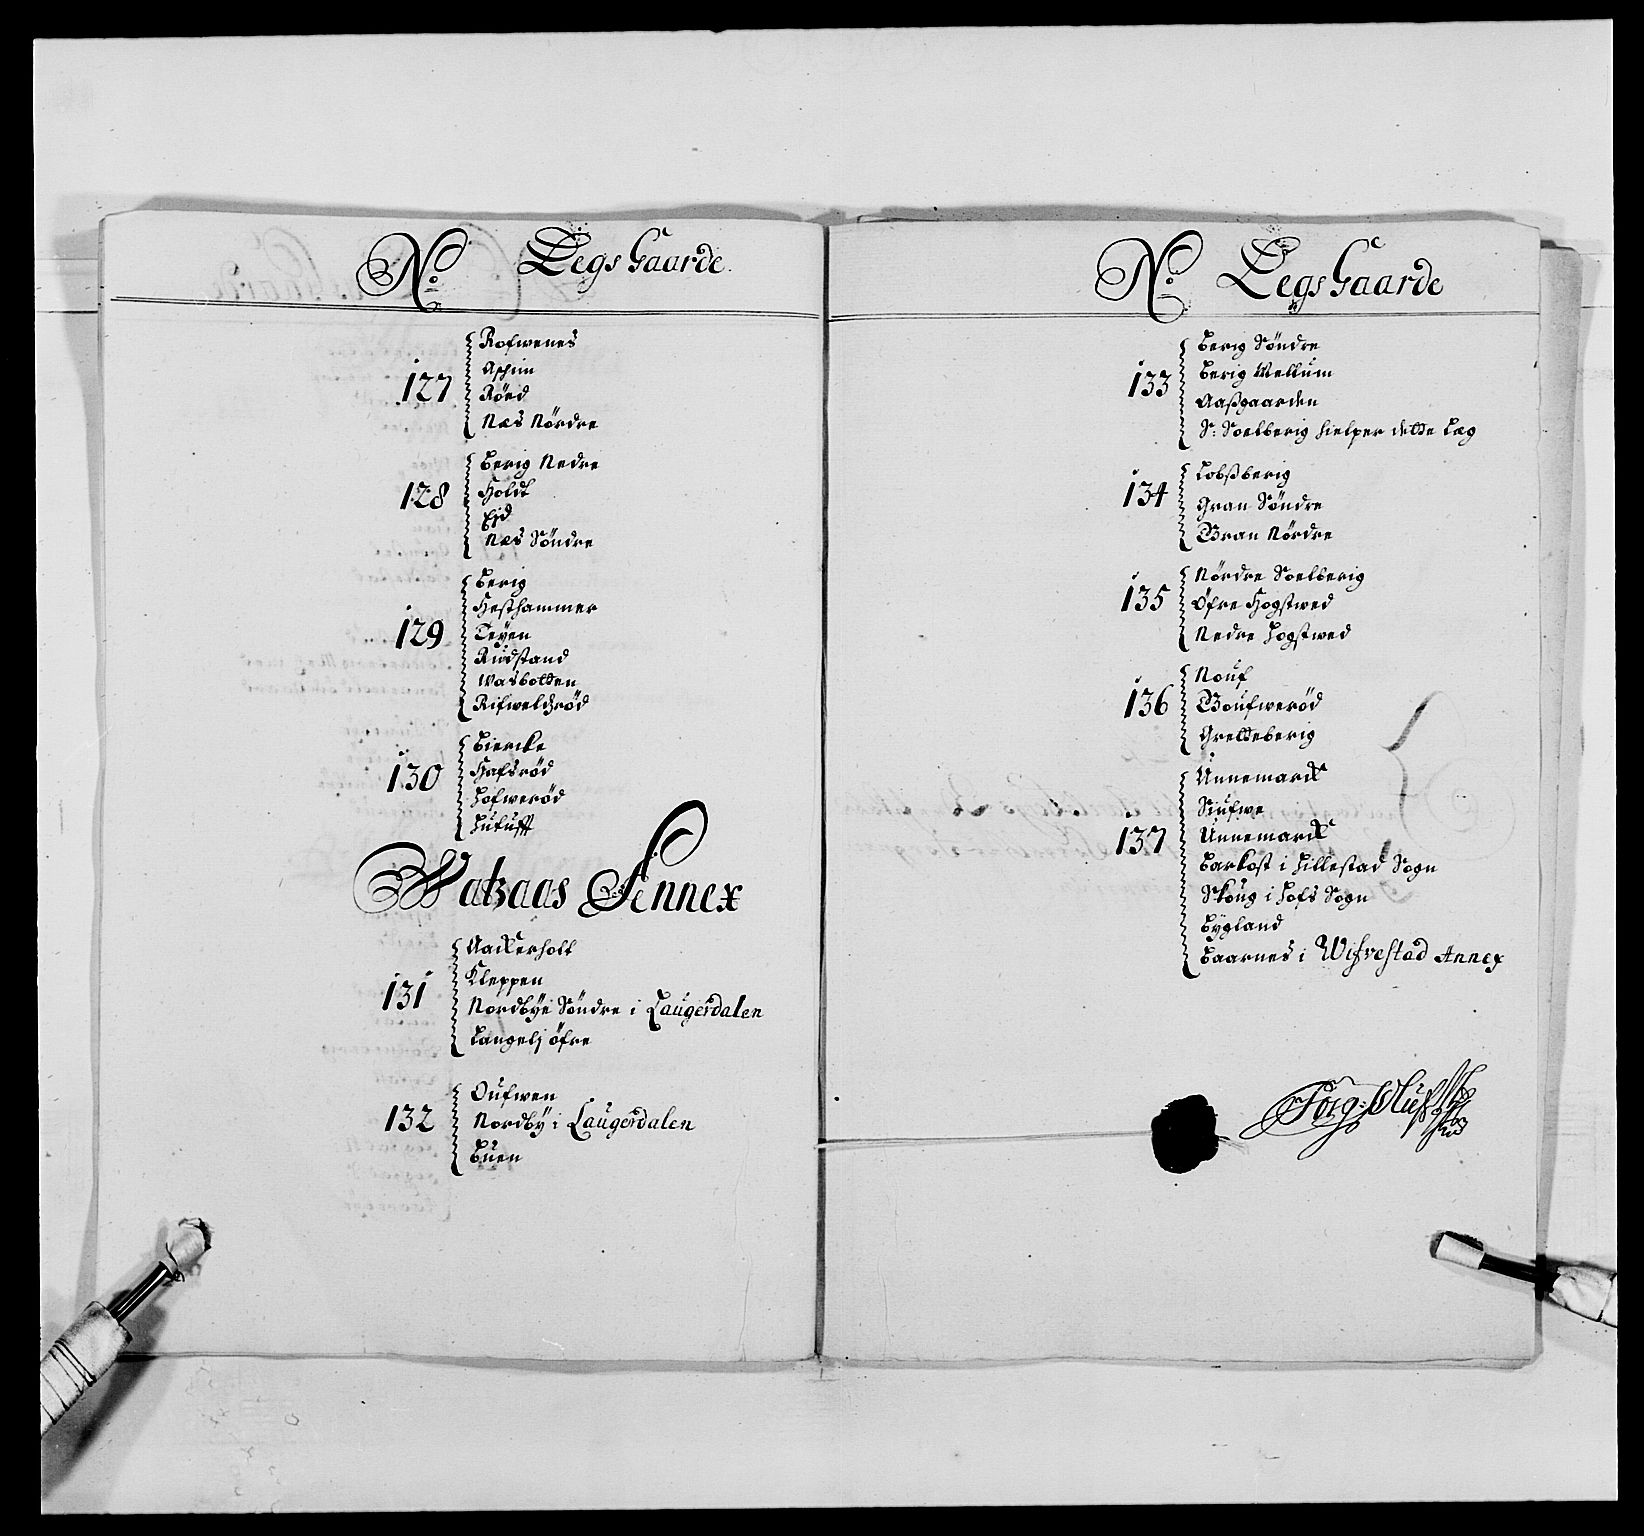 No. Legs Gaarde.
127
Rofwenes
Aschim
Röed
Næs Nördre
128
Berig Nedre
Holdt
Eid
Næs Söndre
129
Berig
Hesthammer
Teÿen
Rudstand
Wasbotten
Rifweldzröd
130
Biercke
Hafsröd
Hofweröd
Watzaas Annex
131
Aackerholt
Kleppen
Nordbÿe Söndre i Laugerdalen
Langelj öfre
132
Oufwen
Nordbÿ i Laugerdalen
Buen
No. Legs Gaarde
133
Berig Söndre
Berig Mellum
Aaßgaarden
S: Soelberig hielper dette Læg
134
Lobßberig
Gran Söndre
Gran Nördre
135
Nördre Soelberig
Öfre Hogstwed
Nedre Hogstwed
136
Nouf
Goufweröd
Gretteberig
137
Unnemarck
Siufwe
Unnemarck
Barkost i Hillestad Sogn
Skoug i Hofs Sogn
Bÿgland
Baarnes i Wifvestad Annex